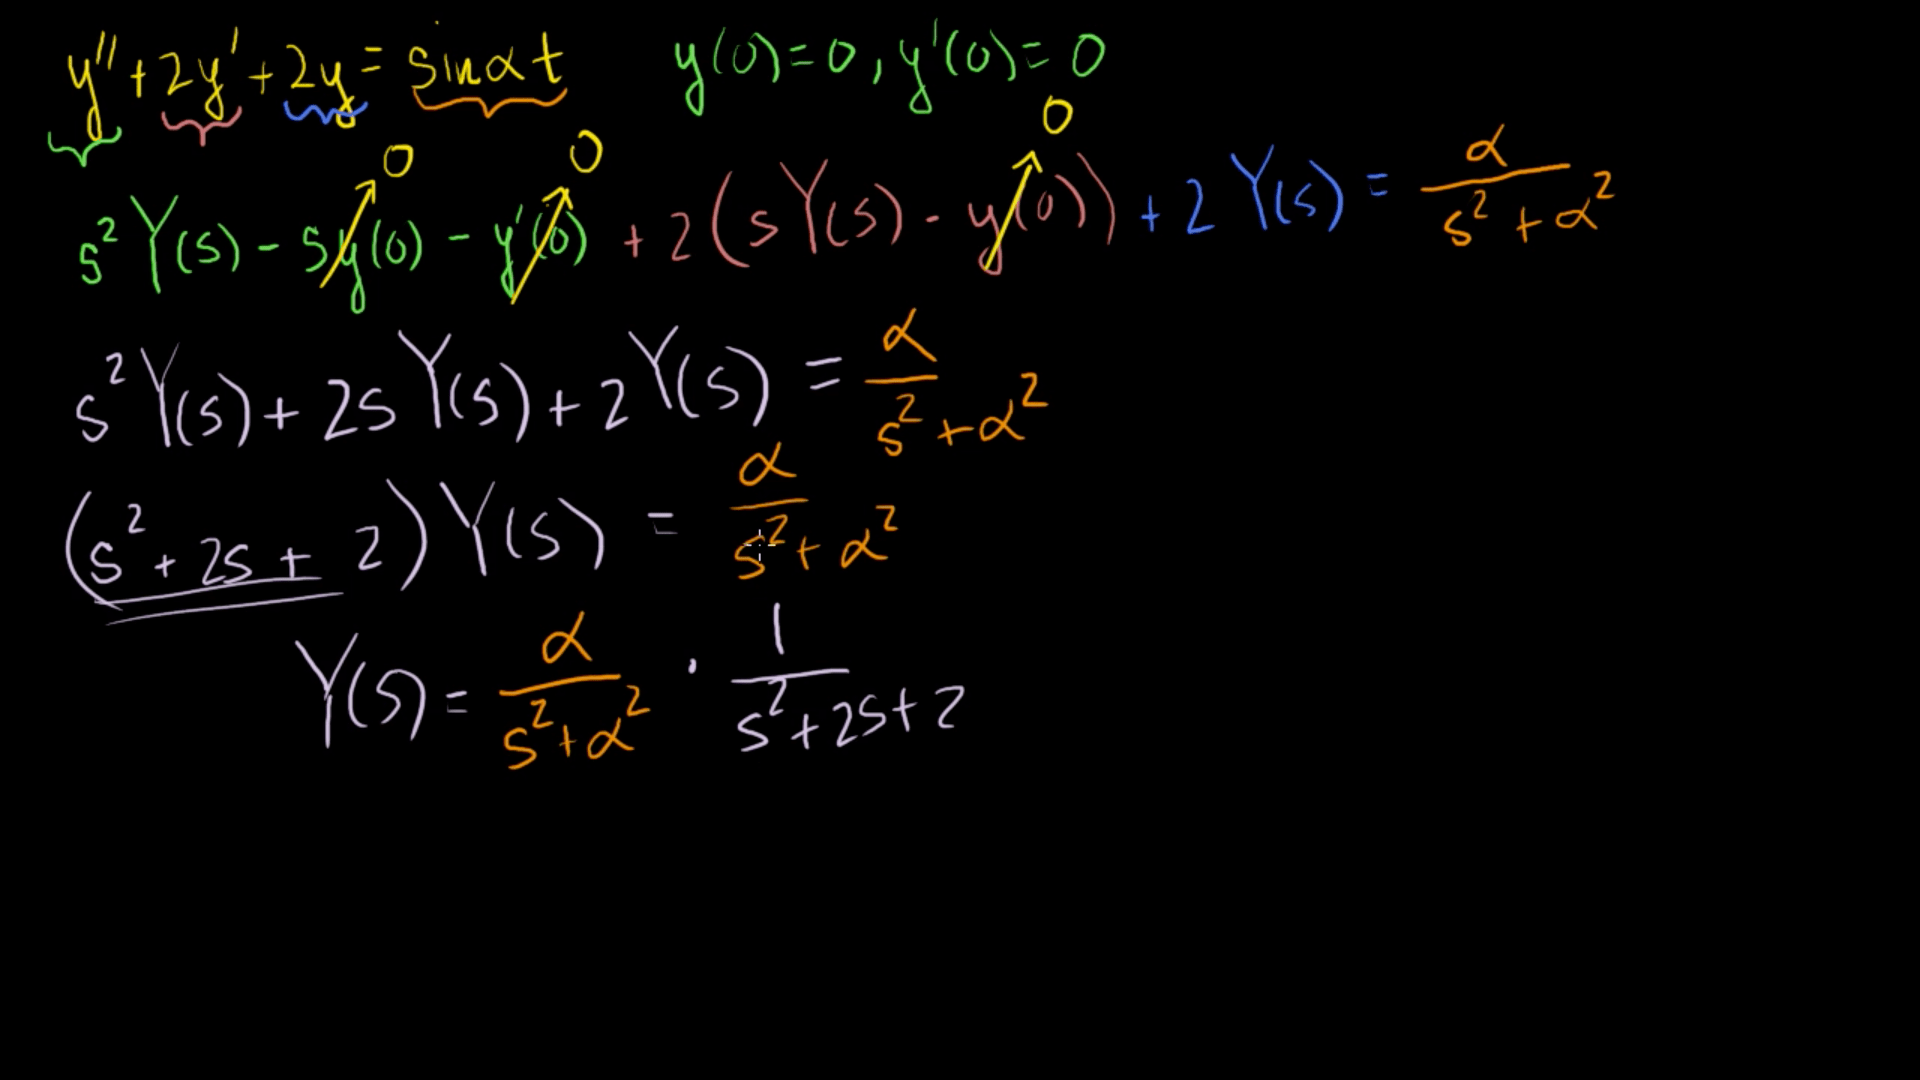 y'' + 2y' + 2y = sin αt    y(0) = 0, y'(0) = 0
0 0 0
s² Y(s) - sy(0) - y'(0) + 2(sY(s) - y(0)) + 2Y(s) = α/(s² + α²)
s² Y(s) + 2s Y(s) + 2 Y(s) = α/(s² + α²)
(s² + 2s + 2) Y(s) = α/(s² + α²)
Y(s) = α/(s² + α²) · 1/(s² + 2s + 2)